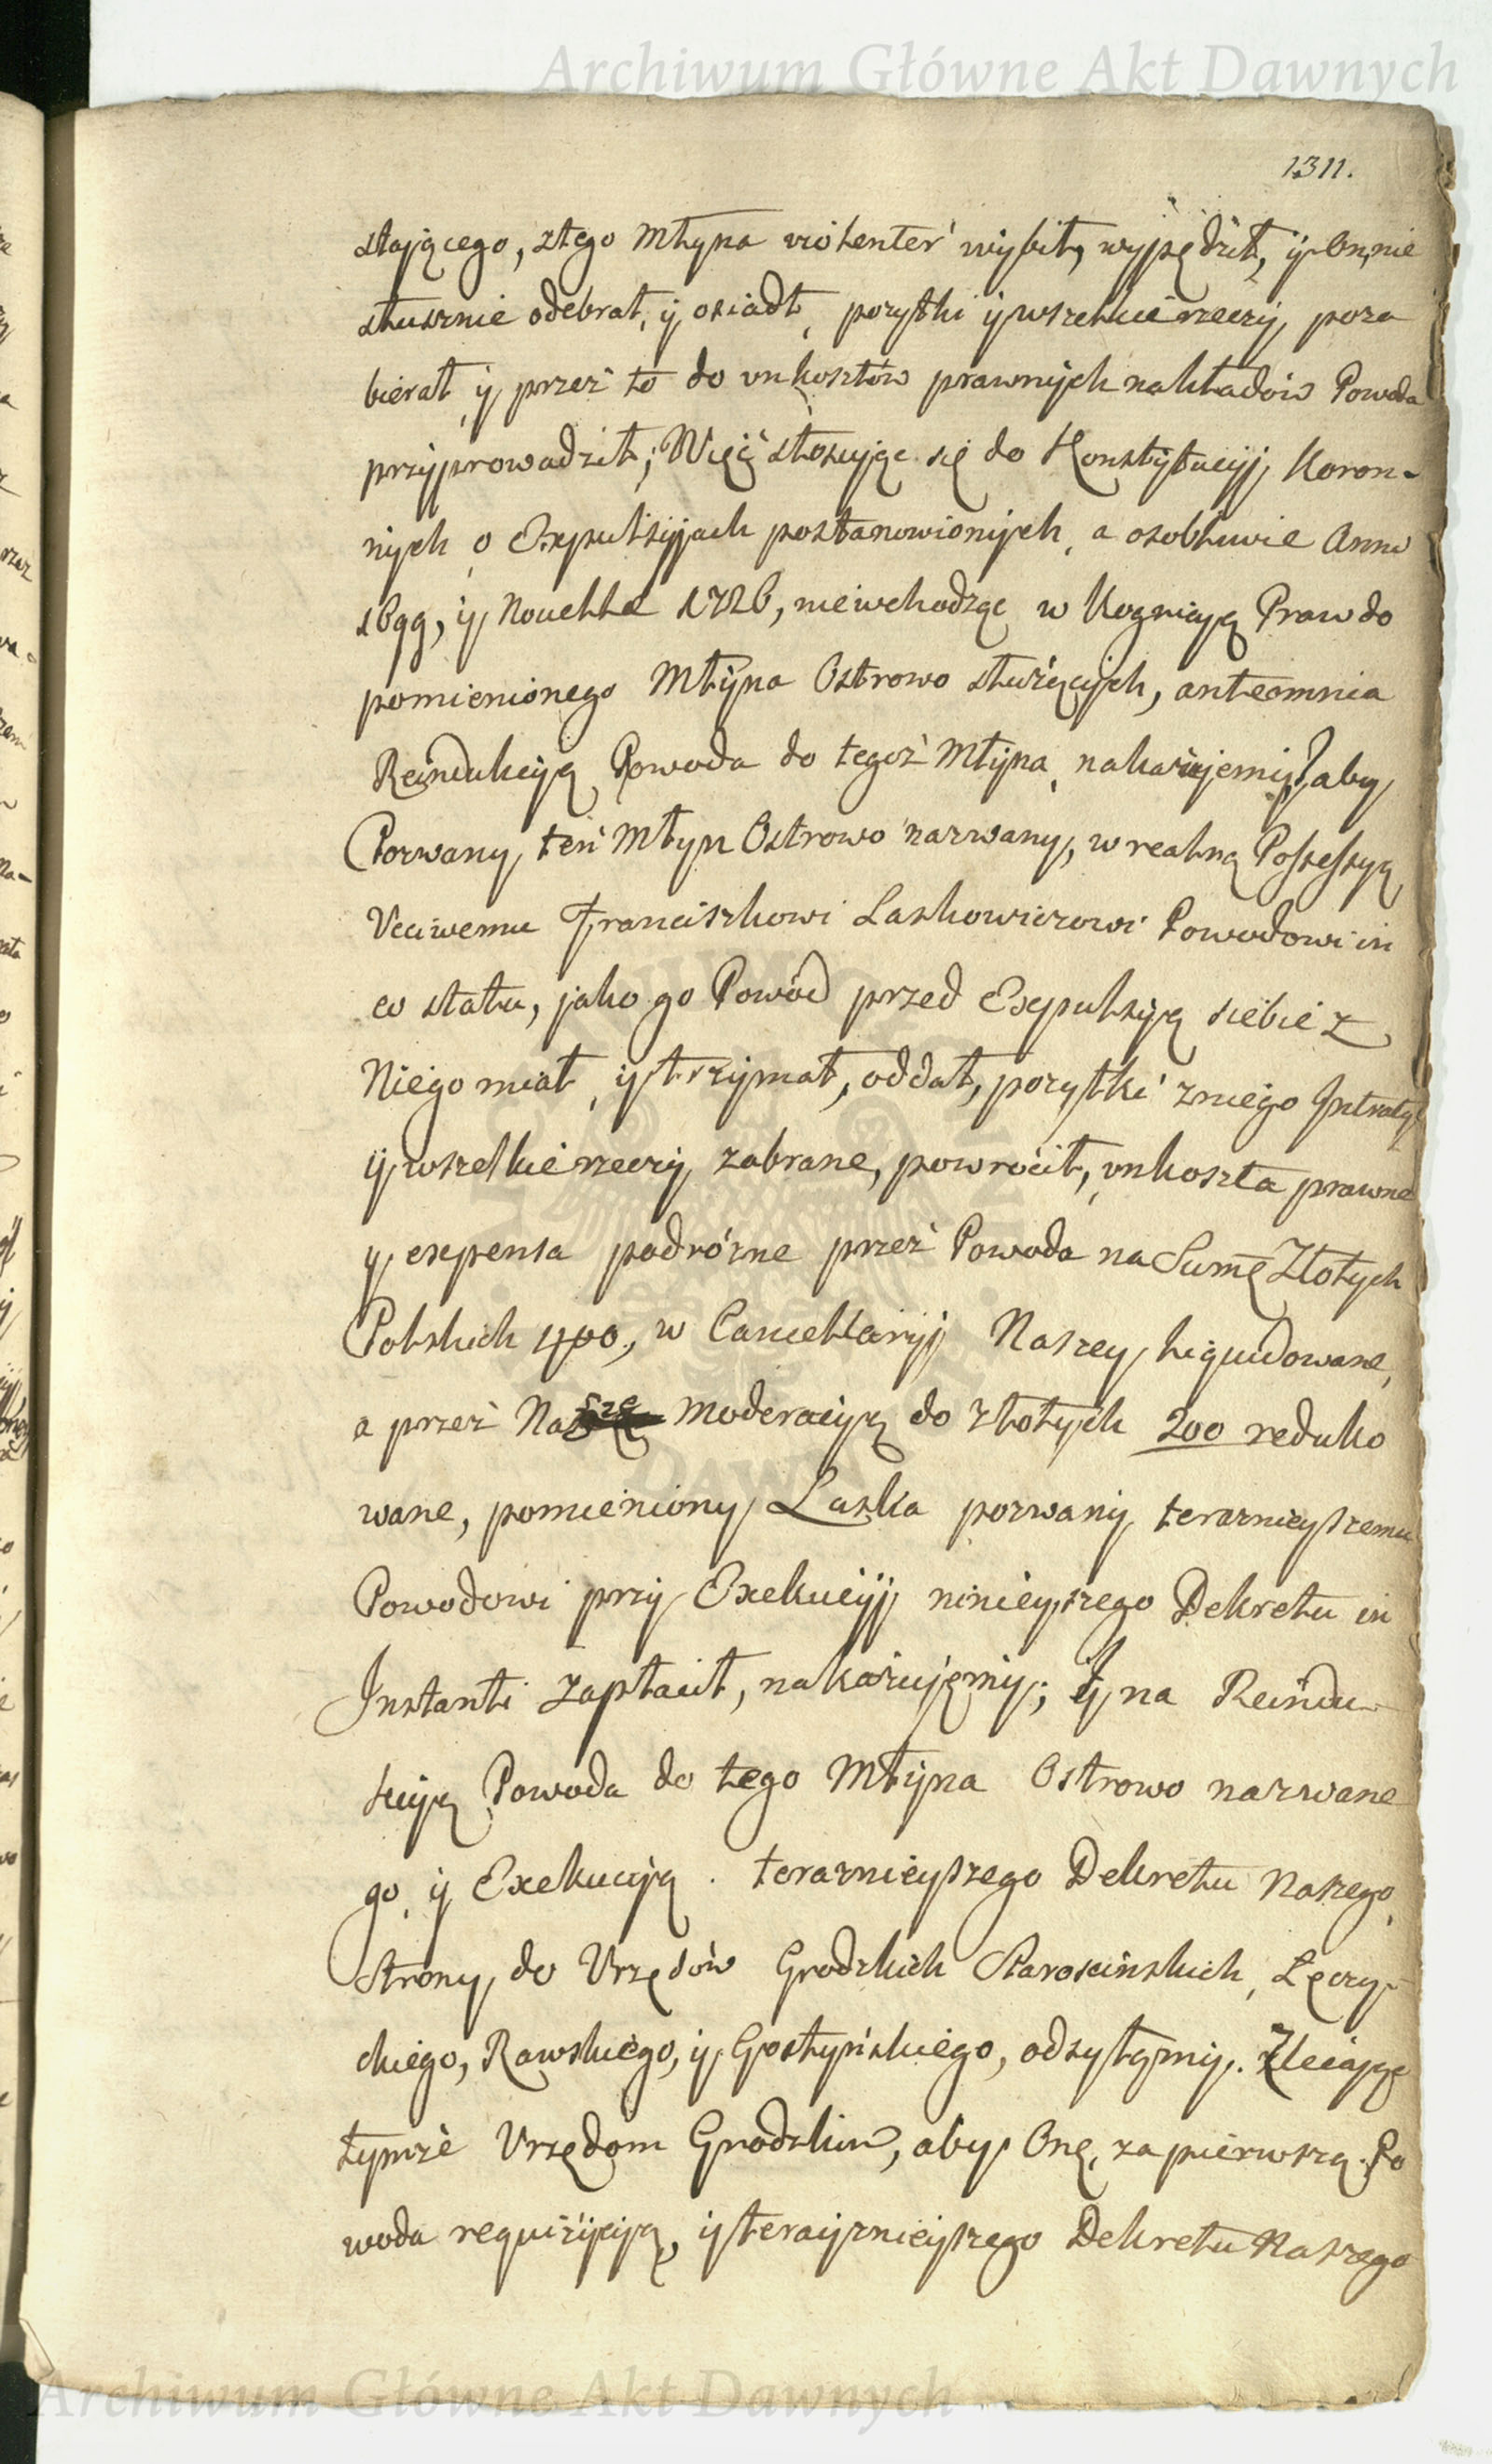 Archiwum Główne Akt Dawnych
1311.
stającego, ztego Młyna violenter wybił, wypędził, y On, nie
słusznie odebrał, y osiadł, pozytki y wszelkie rzeczy poza
bierał y przez to do vnkosztów prawnych nakładów Powoda
przyprowadził; Więc stosuiąc się do Konstytucyj Koron-
nych o Expulsyjach postanowionych, a osobliwie Anno
1699, y Novellę 1726, niewchodząc w Kognicyą Praw do
pomienionego Młyna Ostrowo służących, anteomnia
Reindukcyią Powoda do tegoż Młyna nakazujemy, aby
Pozwany, ten Młyn Ostrowo nazwany, w realną Possessyą
Vcciwemu Franciszkowi Laskowiczowi Powodowi in
eo statu, jako go Powód przed Expulsyią siebie z
Niego miał, y trzymał, oddał, pozytki zniego Intraty
y wszelkie rzeczy zabrane, powrócił, vnkoszta prawne
y expensa podrózne przez Powoda na Summę Złotych
Polskich 400, w Cancellaryj Naszey liquidowane,
a przez Naszę moderacyą do złotych 200 reduko
wane, pomieniony Laska pozwany teraznieyszemu
Powodowi przy Exekucyj ninieyszego Dekretu in
Instanti zapłacił, nakazujęmy; Y na Reindu-
kcyią Powoda do tego Młyna Ostrowo nazwane
go y Exekucyią teraznieyszego Dekretu Naszego,
Strony do Vrzędów Grodzkich Starościnskich, Łęczy-
ckiego, Rawskiego, y Gostyńskiego, odsyłamy. Zlecając
tymże Vrzędom Grodzkim, aby One, za pierwszą Po
woda requizycyią, y terayznieyszego Dekretu Naszego
Archiwum Główne Akt Dawnych